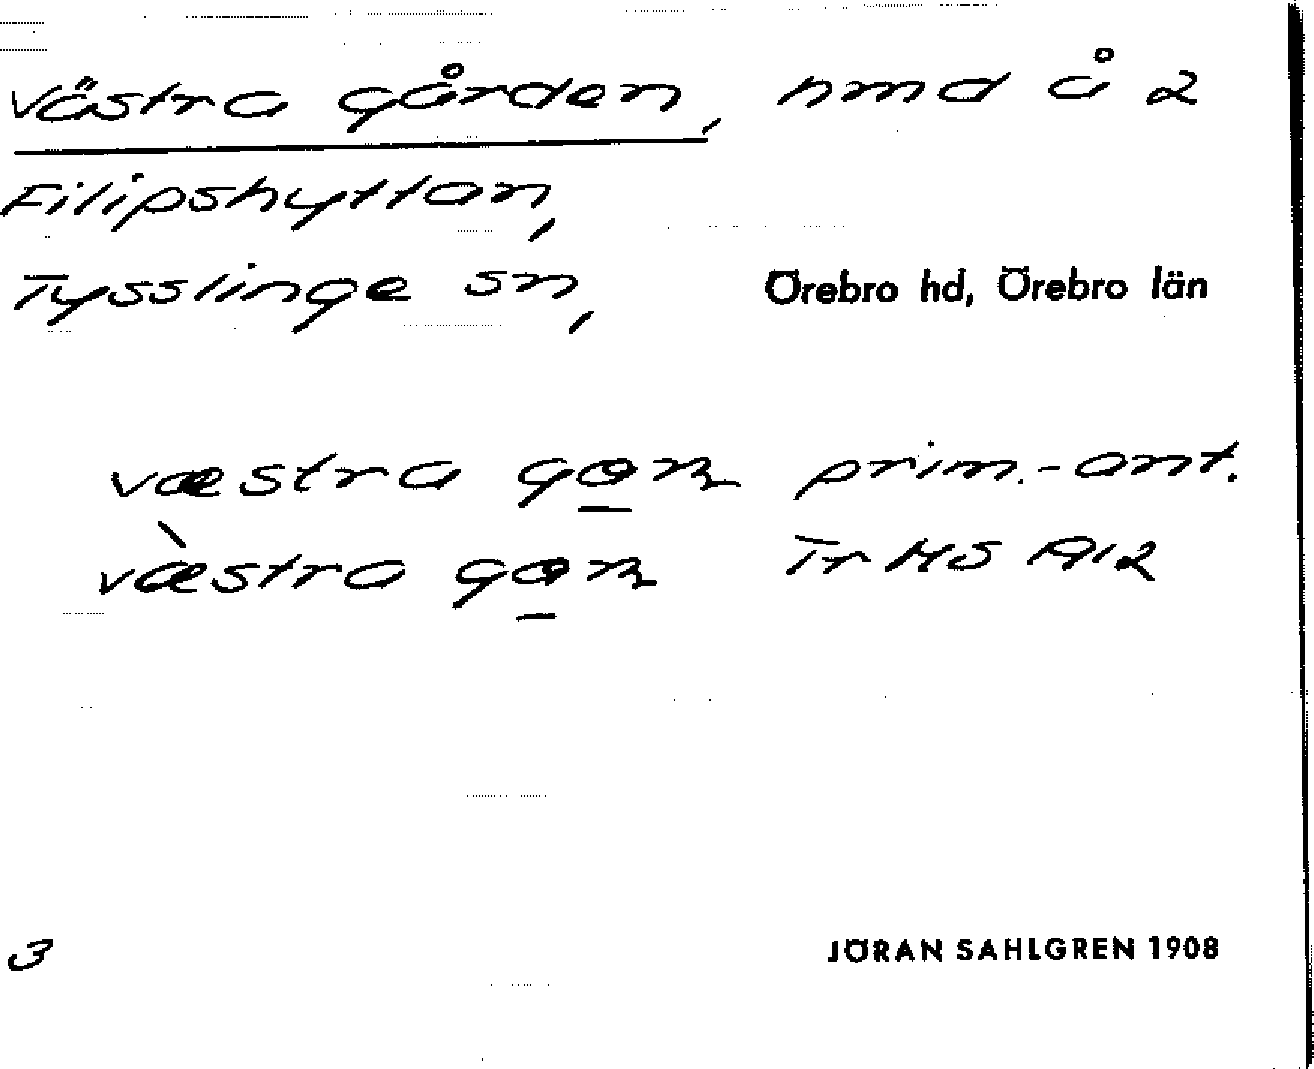 Västra gården, hmd å 2
Filipshyttan,
Tysslinge sn, Örebro hd, Örebro län
væstra gɑɳ prim.-ant.
væ̀stra gɑɳ Tr HS A12
3 JÖRAN SAHLGREN 1908